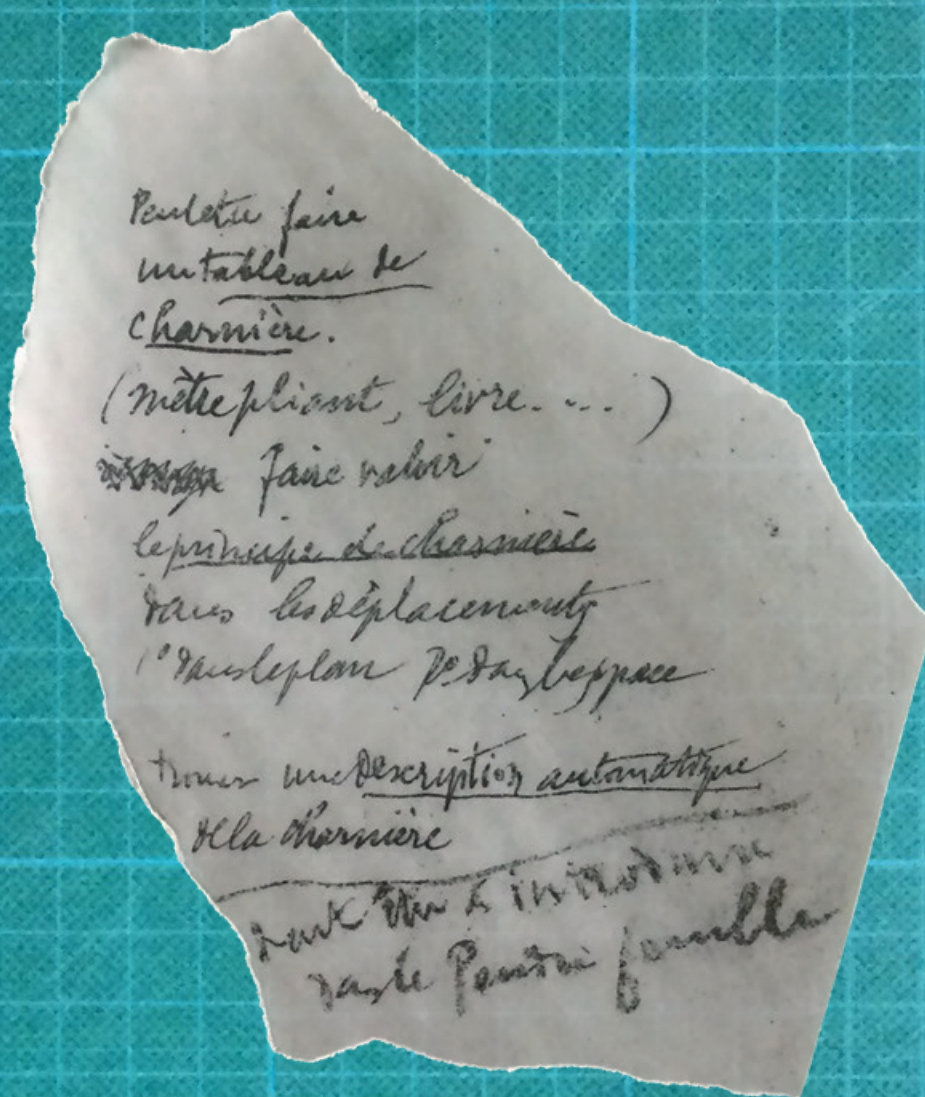 Peut être faire
un tableau de
charnière.
(mètre pliant, livre....)
faire valoir
le principe de charnière
dans les déplacements
1º dans le plan 2º dans l'espace
trouver une description automatique
de la charnière
peut être à introduire
dans le Pendu femelle